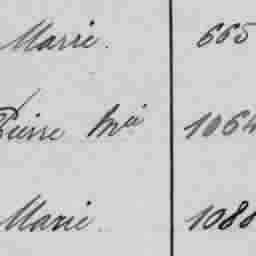 Marie. 665
Pierre Mie 1064
Marie. 1088